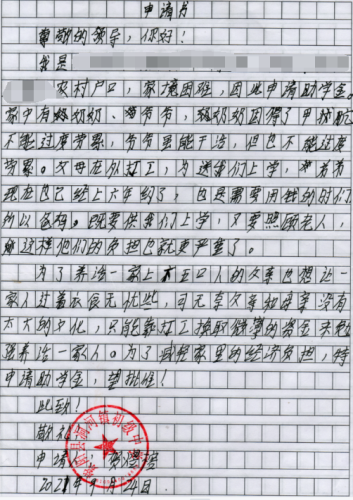 申请书
尊敬的领导,你好!
我是
农村户口,家境困难,因此申请助学金。
家中有奶奶、爷爷,奶奶因得了甲状腺
不能过度劳累,爷爷虽能干活,但也不能过度
劳累。父母在外打工,为送我们上学,弟弟
现在也已经上六年级了,也是需要用钱的时
所以爸妈。既要供我们上学,又要照顾老人,
这样他们的负担也就更严重了。
为了养活一家上下五口人的父亲也想让一
家人过着衣食无忧些,可无奈父亲母亲没有
太大的文化,只能靠打工换取微薄的资金来勉
强养活一家人。为了减轻家里的经济负担,特
申请助学金,望批准!
此致!
敬礼
申请
2021年9月24日